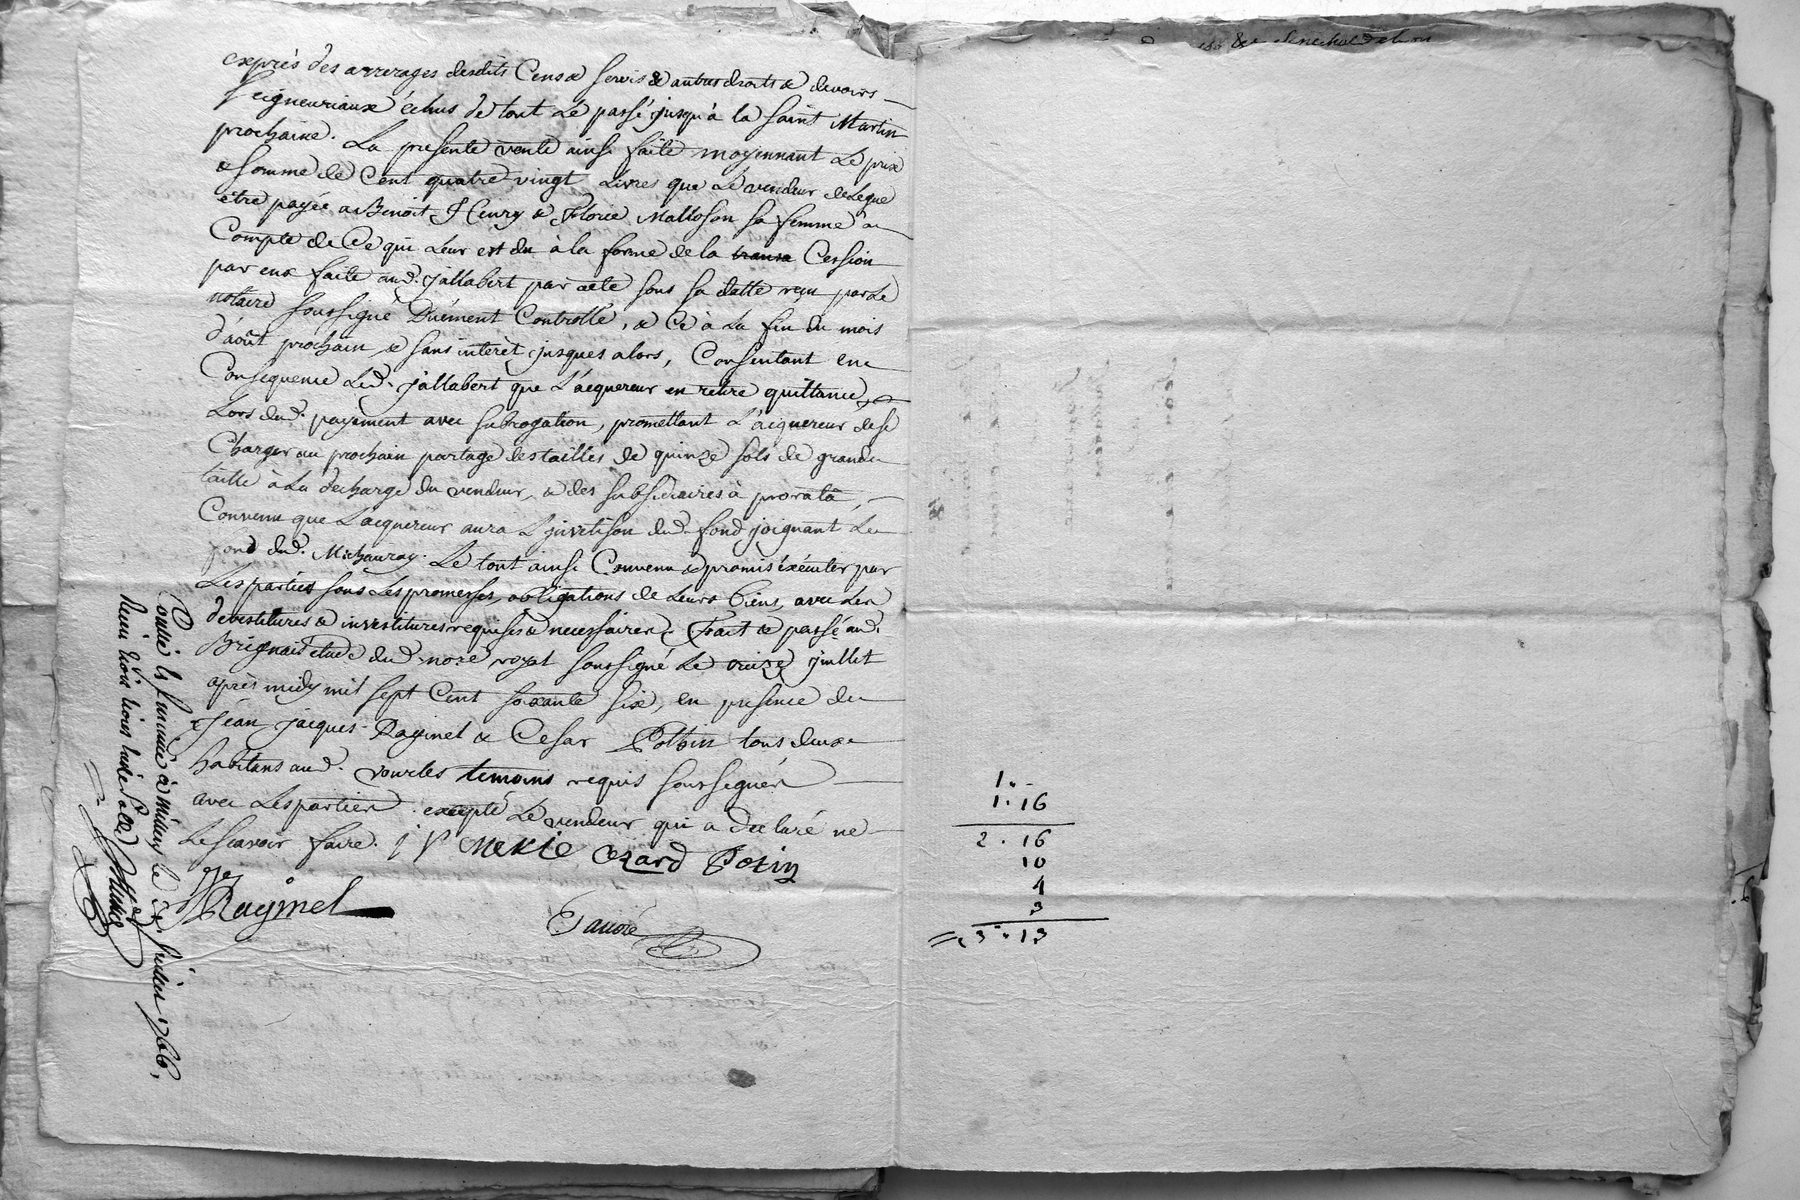 exprès des arrerages desdits Cens & servis & autres droits & devoirs
seigneuriaux échus de tout le passé jusqu'à la saint Martin
prochaine. La presente vente ainsi faite moyennant le prix
& somme de Cent quatre vingt livres que le vendeur delegue
être payée a Benoit Henry & Florie Malloson sa femme a
Compte de Ce qui leur est du à la forme de la transa Cession
par eux faite aud. jallabert par acte sous sa datte reçu par le
notaire soussigné Duëment Controllé, & Ce à la fin du mois
d'août prochain & sans interêt jusques alors, Consentant en
Consequence led. jallabert que l'acquereur en retire quittance
lors dud. payement avec subrogation, promettant l'acquereur de se
Charger au prochain partage des tailles de quinze sols de grande
taille à la decharge du vendeur, & des subsidiaires à prorata,
Convenu que l'acquereur aura l' dud. fond joignant le
fond dud. Michauray. Le tout ainsi Convenu & promis éxécuter par
les parties sous les promesses, obligations de leurs biens, avec les
devestitures & investitures requises & necessaires. Fait & passé aud.
Brignais étude dud. nore royal soussigné le onze juillet
après midy mil sept Cent soixante six, en presence de
jean jacques Raginel & Cesar Pothin tous deux
habitans aud. temoins requis soussignés
avec les parties excepté le vendeur qui a declaré ne
le scavoir faire. j P Merle Cezard Potin
Raginel
Fauvre
Controllé & insinué à millery le juillet 1766.
Reçu
1. -
1. 16
2. 16
10
4
3
= 3. 13
Senechal de Lyon